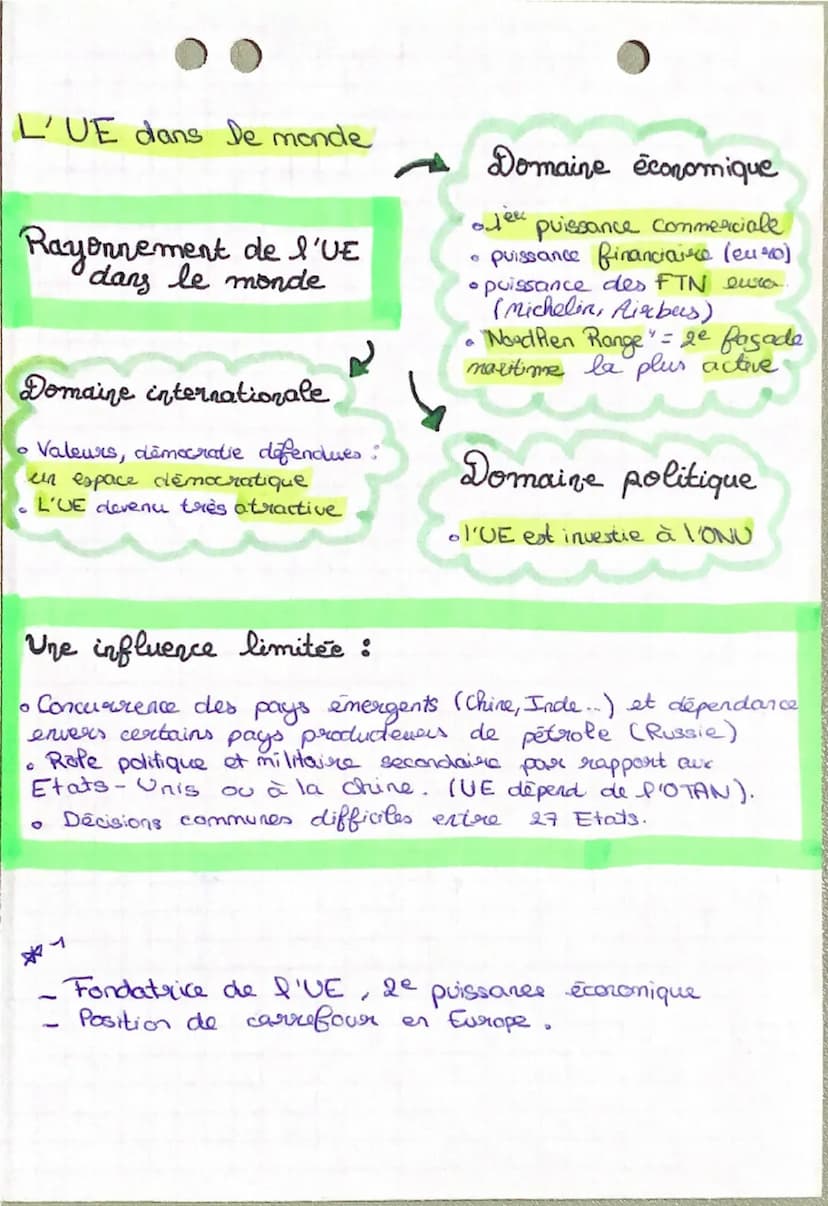 L'UE dans le monde
Rayonnement de l'UE
dans le monde
Domaine économique
1ère puissance commerciale
puissance financiaire (euro)
puissance des FTN euro.
(Michelin, Airbus)
"Nordhen Range" = 2e façade
maritime la plus active
Domaine internationale
Valeurs, démocratie défendues :
un espace démocratique
L'UE devenu très atractive
Domaine politique
l'UE est investie à l'ONU
Une influence limitée :
Concurrence des pays émergents (Chine, Inde...) et dépendance
envers certains pays producteurs de pétrole (Russie)
Rôle politique et militaire secondaire par rapport aux
Etats-Unis ou à la chine. (UE dépend de l'OTAN).
Décisions communes difficiles entre 27 Etats.
*1
- Fondatrice de l'UE, 2e puissance économique
- Position de carrefour en Europe.